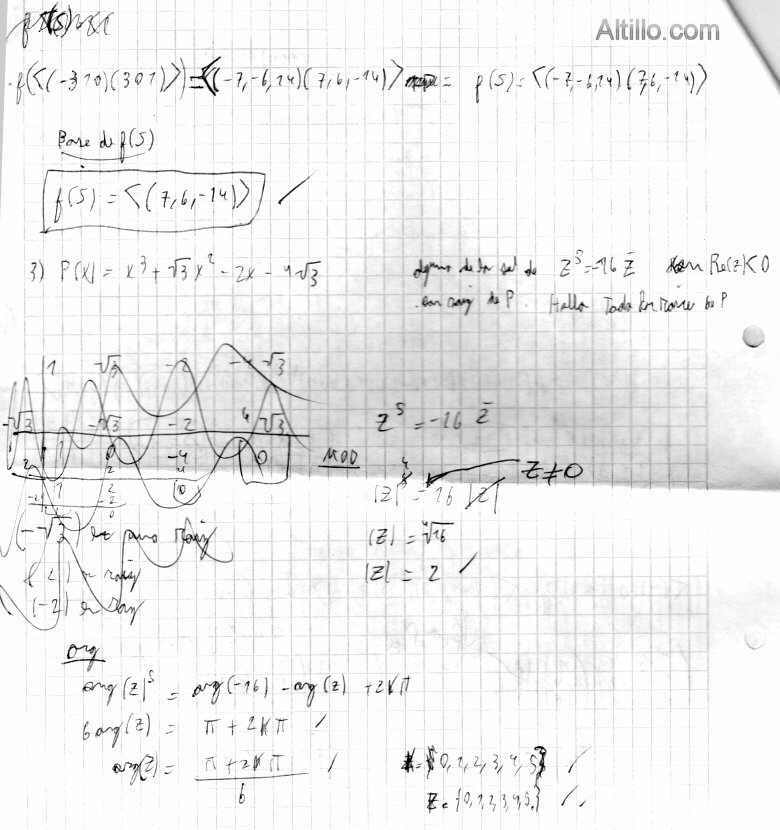 Altillo.com
f(<(-3 1 0)(3 0 1)>) = <(-7,-6,14)(7,6,-14)> = f(S) = <(-7,-6,14)(7,6,-14)>
Base de f(S)
f(S) = <(7,6,-14)>
3) P(x) = x³ + √3x² - 2x - 4√3
alguna de las sol de z⁵ = -16 z̄ con Re(z)<0
son raíz de P. Hallar Todas las raíces de P
1 √3 -2 -4√3
-√3 -√3 -2 4√3
1 0 -4 0
2 2 4
1 2 0
-2 -2
0
z⁵ = -16 z̄
MOD
z≠0
|z|⁴ = 16 |z|
(-√3) es raíz
|z| = ⁴√16
(2) es raíz
|z| = 2
(-2) es raíz
arg
arg(z)⁵ = arg(-16) - arg(z) + 2kπ
6 arg(z) = π + 2kπ
arg(z) = π + 2kπ / 6
k = {0,1,2,3,4,5}
z = {0,1,2,3,4,5}